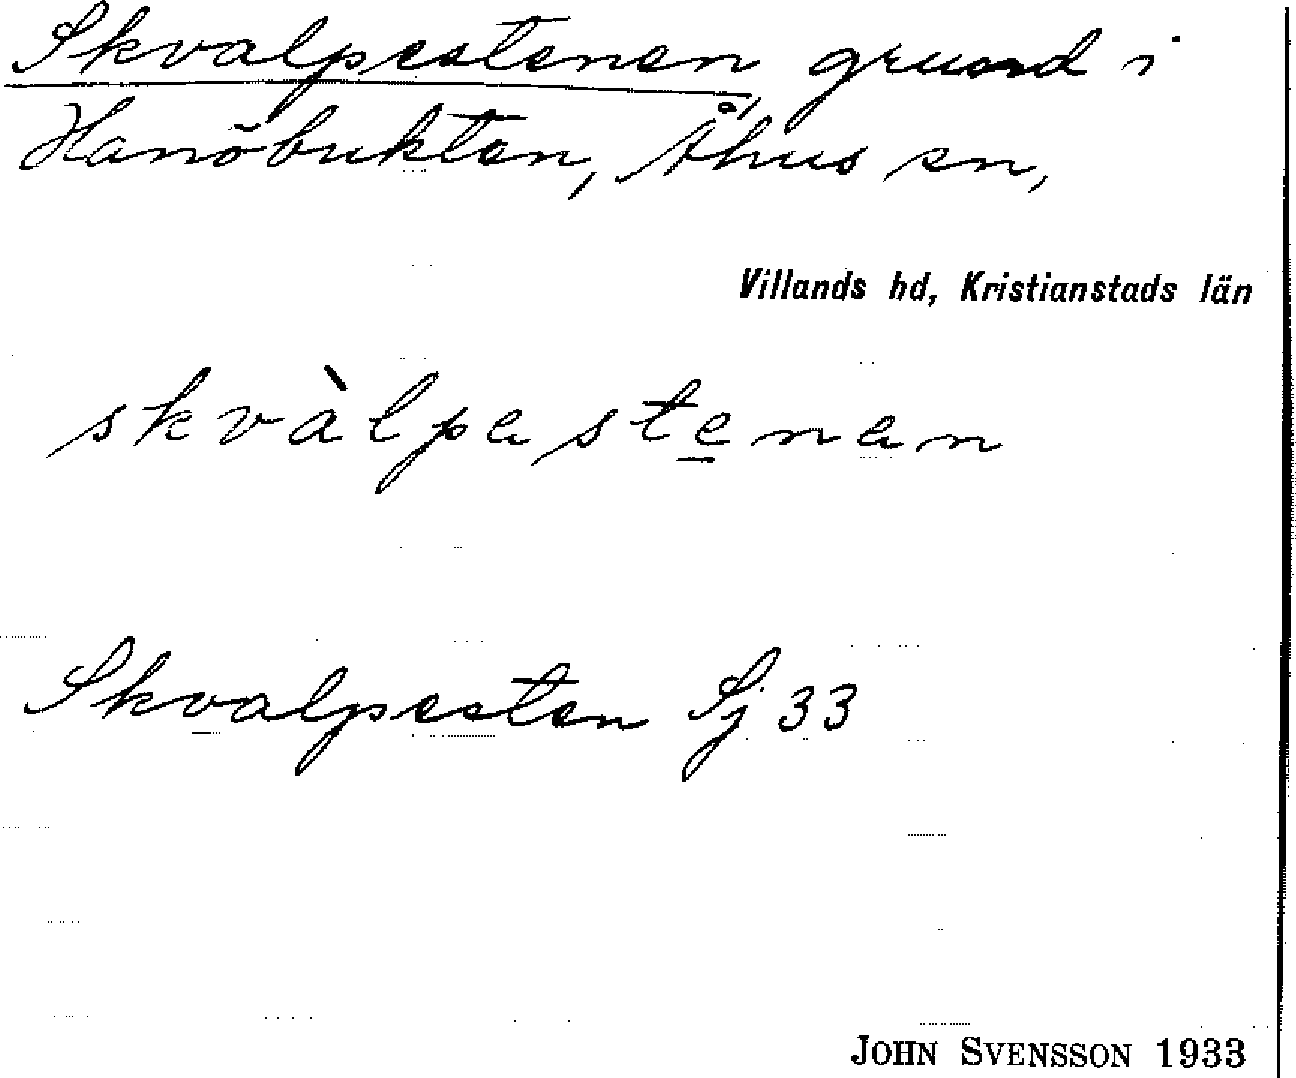 Skvalpestenen, grund i
Hanöbukten, Åhus sn,
Villands hd, Kristianstads län
skvàlpestenen
Skvalpesten Sj 33
JOHN SVENSSON 1933